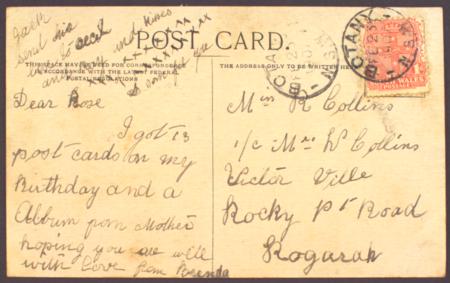 Jack
send his
to cecil
and kisses
POST CARD.
THIS SPACE MAY BE USED FOR CORRESPONDENCE
IN ACCORDANCE WITH THE LATEST FEDERAL
POSTAL REGULATIONS
THE ADDRESS ONLY TO BE WRITTEN HERE
BOTANY
N.S.W
BOTANY
N.S.W
Dear Rose
I got 13
post cards on my
Birthday and a
Album from Mother
hoping you are will
with love from
Miss R Collins
1/c Mrs W Collins
Victor Ville
Rocky Pt Road
Kogarah